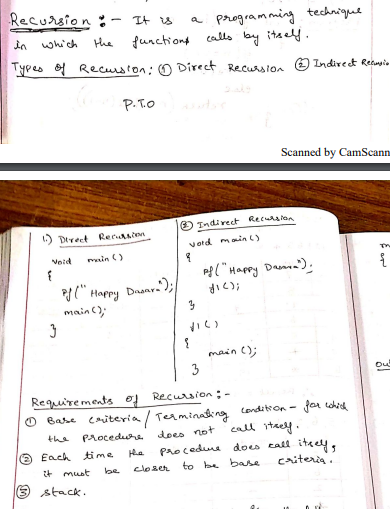 Recursion :- It is a programming technique
in which the functions calls by itself.
Types of Recursion: ① Direct Recursion ② Indirect Recursio
P.T.O
Scanned by CamScann
1.) Direct Recursion
void main()
{
pf("Happy Dasara");
main();
}
② Indirect Recursion
void main()
{
pf("Happy Dasara");
f1();
}
f1()
{
main();
}
Requirements of Recursion :-
① Base criteria / Terminating condition - for which
the procedure does not call itself.
② Each time the procedure does call itself,
it must be closer to be base criteria.
③ stack.